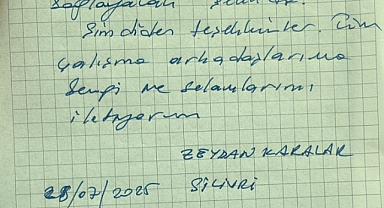 sağlayacak
Şimdiden teşekkürler. Tüm
çalışma arkadaşlarıma
sevgi ve selamlarımı
iletiyorum
ZEYDAN KARALAR
28/07/2025 SİLİVRİ